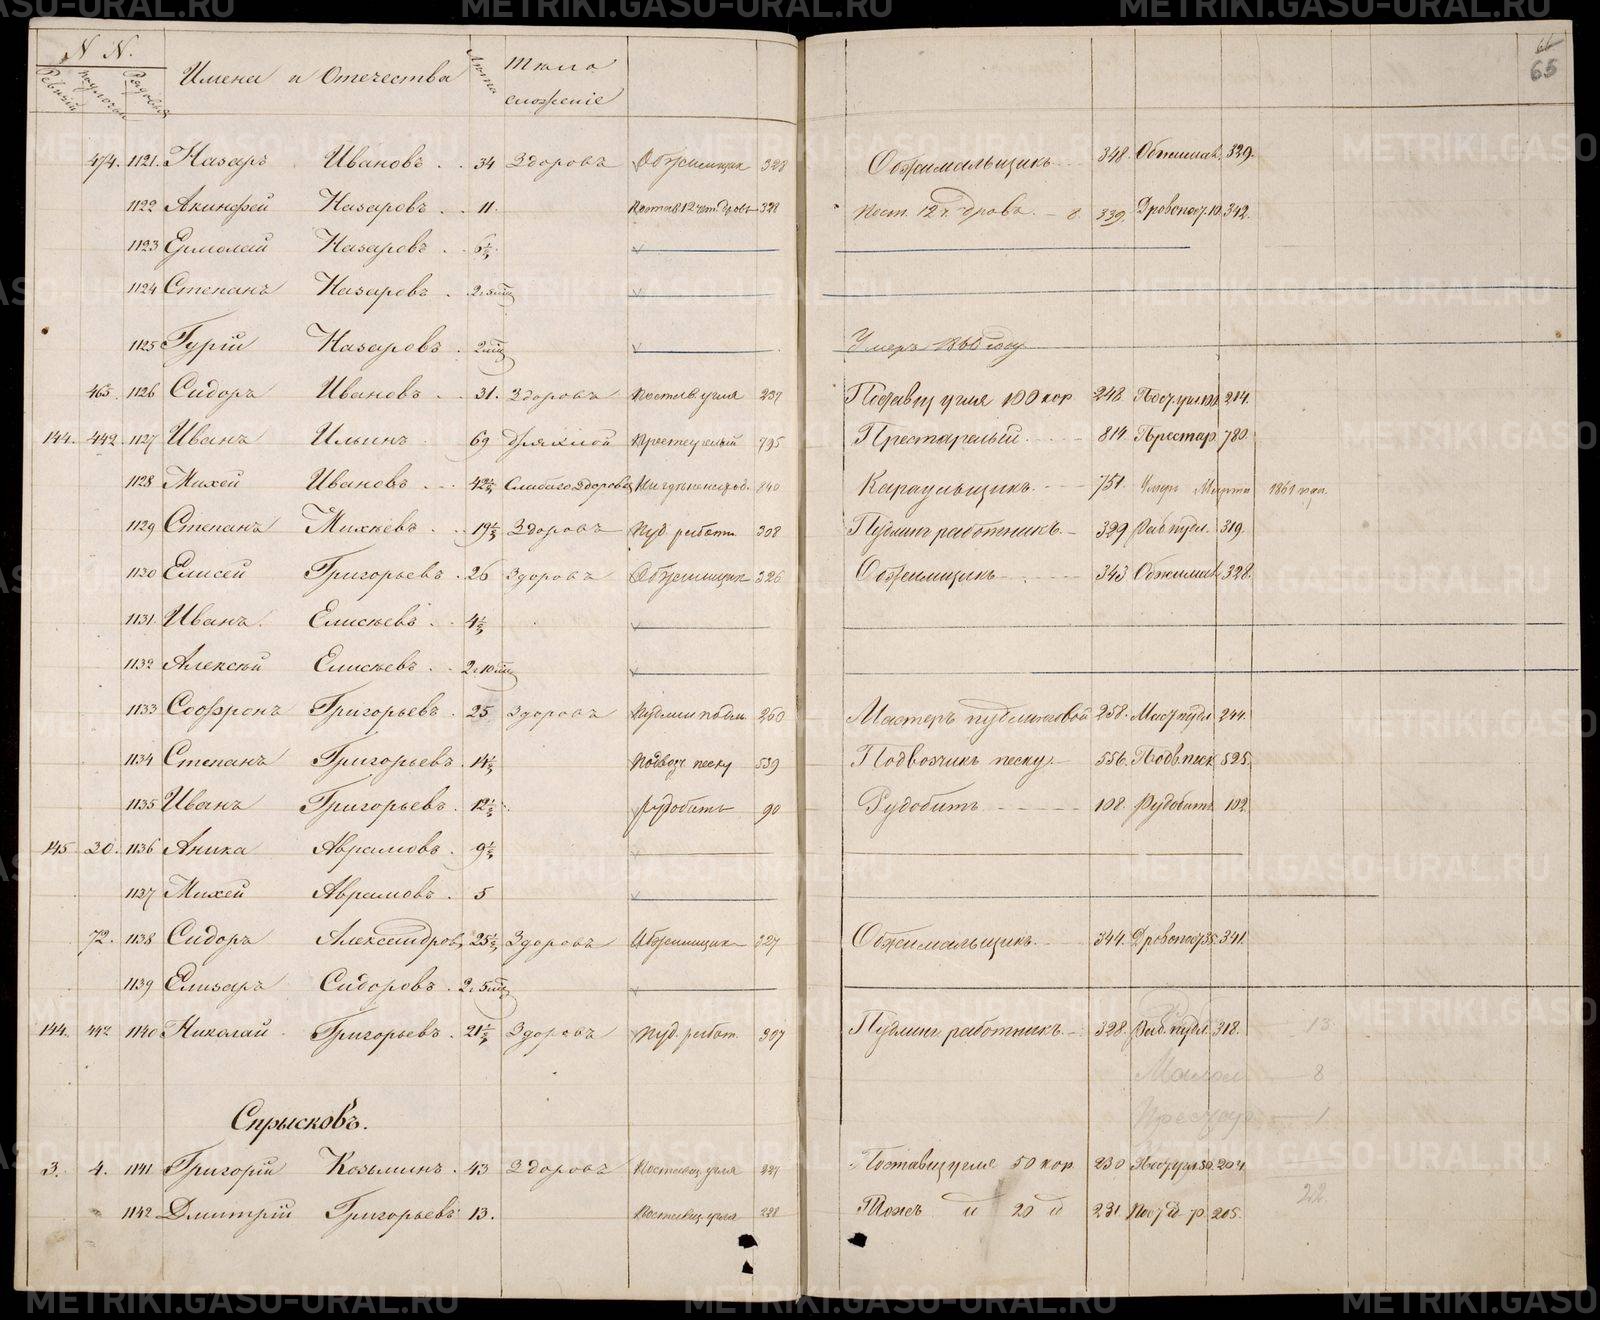 N N. Имена и Отечества Лѣта Тѣло сложенiе
Ревизiи Рядовыя
66
65
474. 1121. Назаръ Ивановъ 34 Здоровъ Обжимщик 328 Обжимальщикъ 348. Обжимал. 329.
1122 Акинфей Назаровъ 11. Постав. 12 чет. дровъ 328 Пост. 12 ч. дровъ 339. Дровопост. 10. 342.
1123 Ермолай Назаровъ 6½
1124 Степанъ Назаровъ
1125 Гурiй Назаровъ Умеръ 1860 году
465. 1126 Сидоръ Ивановъ 31. Здоровъ Постав. угля 237 Поставщ угля 100 кор 248. 214.
144. 442. 1127 Иванъ Ильинъ 69 Дряхлой Престарелый 795 Престарелый 814. Престар. 780.
1128 Михей Ивановъ 42½ Слабаго здоровья 840 Караульщикъ 751. Умеръ Марта 1861
1129 Степанъ Михѣевъ 19½ Здоровъ Пуд. работн. 308 Пудлинг работникъ 329 Раб. пудл. 319.
1130 Елисей Григорьевъ 26 Здоровъ Обжимщик 326 Обжимщикъ 343 Обжимал. 328.
1131 Иванъ Елисѣевъ 4½
1132 Алексѣй Елисѣевъ
1133 Софронъ Григорьевъ 25 Здоровъ 260 Мастеръ пудлинговой 258. Маст. пудл 244.
1134 Степанъ Григорьевъ 14½ Подвоз. песку 539 Подвозчикъ песку 556. Подв. песк 525.
1135 Иванъ Григорьевъ 12½ Рудобитъ 90 Рудобитъ 108. Рудобитъ 102
145 20. 1136 Аника Аврамовъ 9½
1137 Михей Аврамовъ 5
72. 1138 Сидоръ Александровъ 25½ Здоровъ Обжимщик 327 Обжимальщикъ 344. Дровопост 35. 341.
1139 Елизаръ Сидоровъ
144. 442 1140 Николай Григорьевъ 21½ Здоровъ Пуд. работ. 307 Пудлинг. работникъ 328. Раб. пудл. 318. 13
Малол 8
Престар 1
Спрысковъ.
3. 4. 1141 Григорiй Козьминъ 43 Здоровъ Поставщ. угля 227 Поставщ угля 50 кор. 230 204.
22
1142 Дмитрiй Григорьевъ 13. Поставщ. угля 228 Тожъ 20 231 205.
METRIKI.GASO-URAL.RU